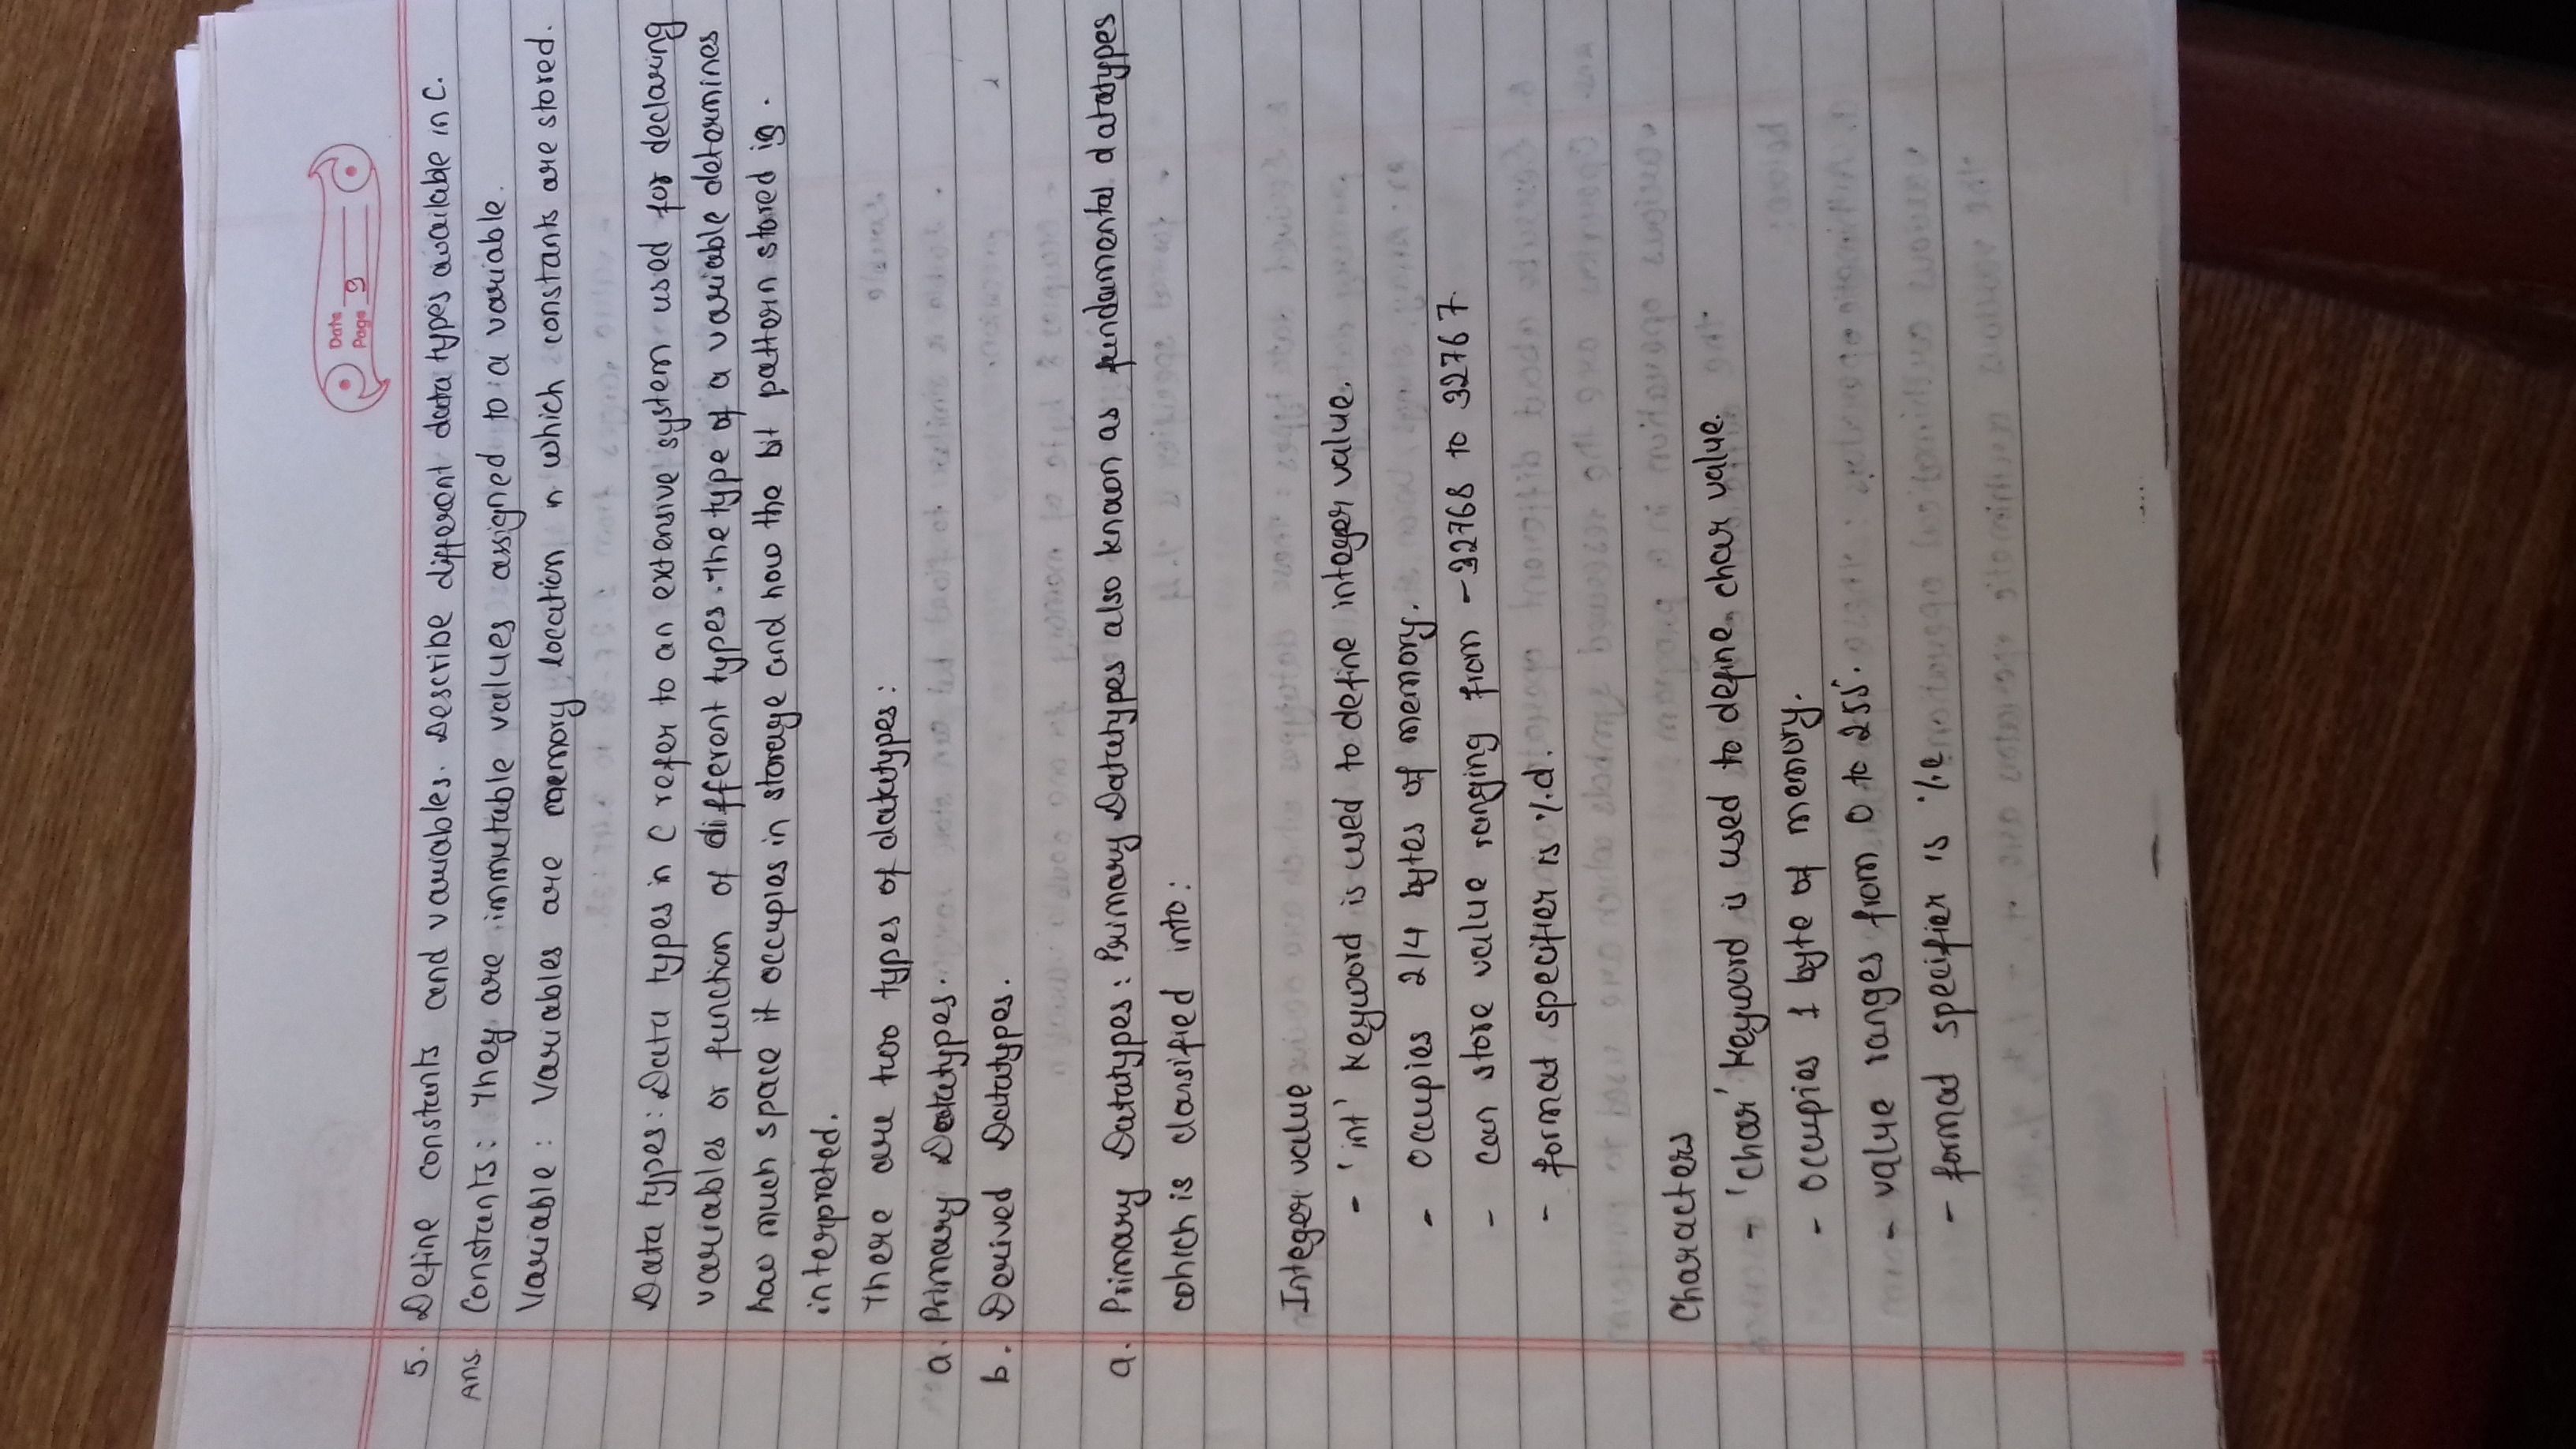 Date
Page 9
5. Define constants and variables. Describe different data types available in C.
Ans Constants: They are immutable values assigned to a variable.
Variable: Variables are memory location in which constants are stored.
Data types: Data types in C refer to an extensive system used for declaring
variables or function of different types. The type of a variable determines
how much space it occupies in storage and how the bit pattern stored is.
interpreted.
There are two types of datatypes:
a. Primary Datatypes.
b. Derived Datatypes.
a. Primary Datatypes: Primary Datatypes also known as fundamental datatypes
which is classified into:
Integer value
- 'int' keyword is used to define integer value.
- Occupies 2/4 bytes of memory.
- can store value ranging from -32768 to 32767.
- format specifier is %d.
Characters
- 'char' keyword is used to define char value.
- Occupies 1 byte of memory.
- value ranges from 0 to 255.
- format specifier is %c